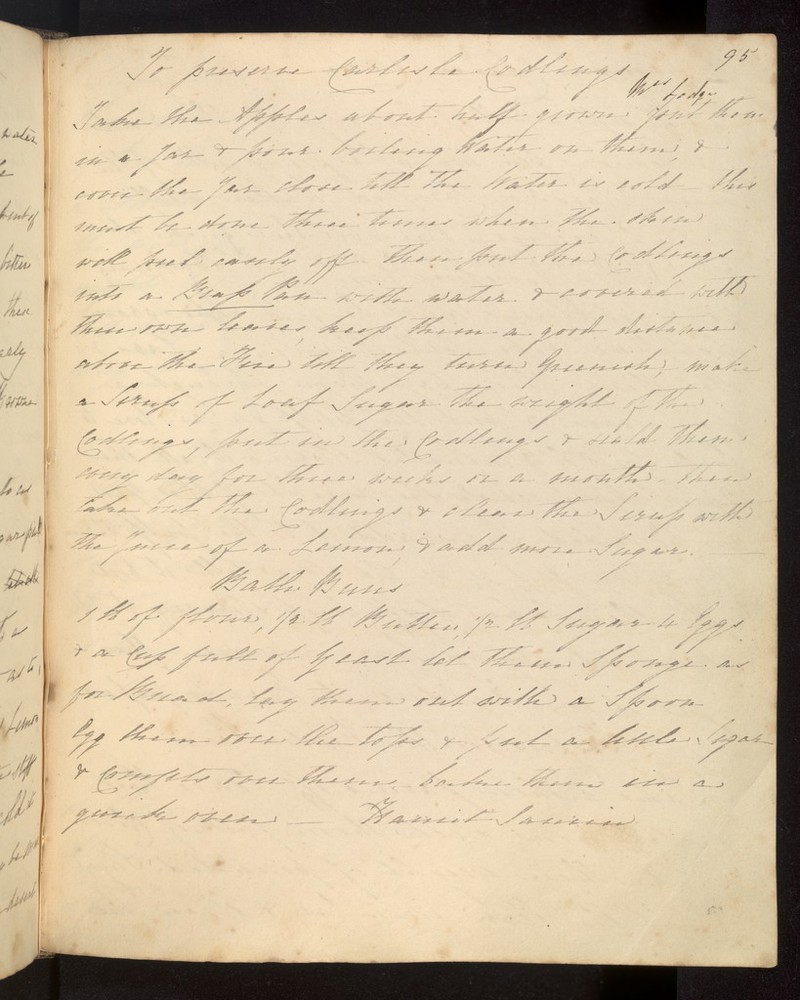 95
To preserve Carlisle Codlings
Mrs
Take the Apples about half grown put them
in a Jar & pour boiling Water on them, &
cover the Jar close till the Water is cold - this
must be done three times when the skin
will peel easily off then put the Codlings
into a Brass Pan with water & covered with
their own leaves, keep them a good distance
above the Fire till they turn Greenish, make
a Sirup of Loaf Sugar the weight of the
Codlings, put in the Codlings & scald them
every day for three weeks or a month - then
take out the Codlings & clear the Sirup with
the Juice of a Lemon, & add more Sugar.
Bath Buns
1 lb of flour, 1/2 lb Butter, 1/2 lb Sugar 4 Eggs
& a Cup full of Yeast let them Sponge as
for Bread, lay them out with a Spoon
Egg them over the tops & put a little Sugar
& Comfits over them - bake them in a
quick oven — Harriet
water
bitter
then